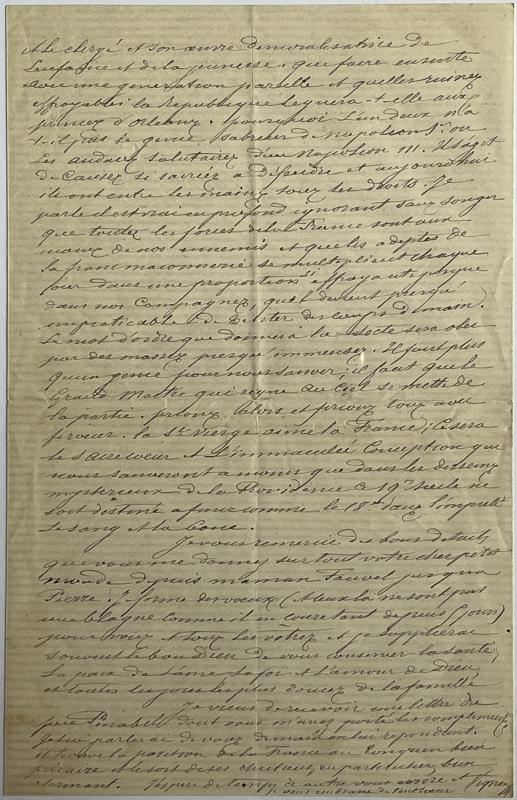 et le clergé et son œuvre démoralisatrice de
l'enfance et de la jeunesse. que faire ensuite
avec une génération pareille et quelles ruines
effroyables la République leguera-t-elle aux
princes d'Orléans. pourquoi l'un deux n'a
t-il pas le génie sabreur de Napoléon 1er ou
les audaces salutaires d'un Napoléon III. Il s'agit
de causes si sacrées à défendre et aujourd'hui
ils ont entre les mains tous les droits. Je
parle il est vrai en profond ignorant sans songer
que toutes les forces de la France sont aux
mains de nos ennemis et que les adeptes de
la franc maconnerie se multiplient chaque
jour dans une proportion si effrayante, presque
dans nos campagnes, qu'il devient presque
impraticable de tenter des coups de main.
Le mot d'ordre que donnera la secte sera obéi
par des masses presqu'immenses. Il faut plus
qu'un génie pour nous sauver; il faut que le
Grand Maître qui règne au Ciel se mette de
la partie. prions, alors et prions tous avec
ferveur. la Ste Vierge aime la France; ce sera
le Sacré cœur et l'immaculée Conception qui
nous sauveront à moins que dans les desseins
mystérieux de la Providence ce 19e siècle ne
soit destiné à finir comme le 18e dans l'impiété
le sang et la boue.
Je vous remercie des bons détails
que vous me donnez sur tout votre cher petit
monde depuis maman Fauvel jusqu'à
Pierre. Je forme des vœux (et ceux là ne sont pas
une blague comme il en court tant depuis 6 jours)
pour vous et tous les vôtres et je supplierai
souvent le bon Dieu de vous conserver la santé,
la paix de l'âme, la foi et l'amour de Dieu,
et toutes les joies les plus douces de la famille
Je viens de recevoir une lettre du
père Pinabel, dont vous m'avez porté les compliments
Je lui parlerai de vous demain en lui répondant.
il trouve la position de la France au Tonquin bien
précaire et le sort de ses chrétiens, en particulier, bien
alarmant. J'espère de temps à autre vous écrire et
je vous embrasse de tout cœur